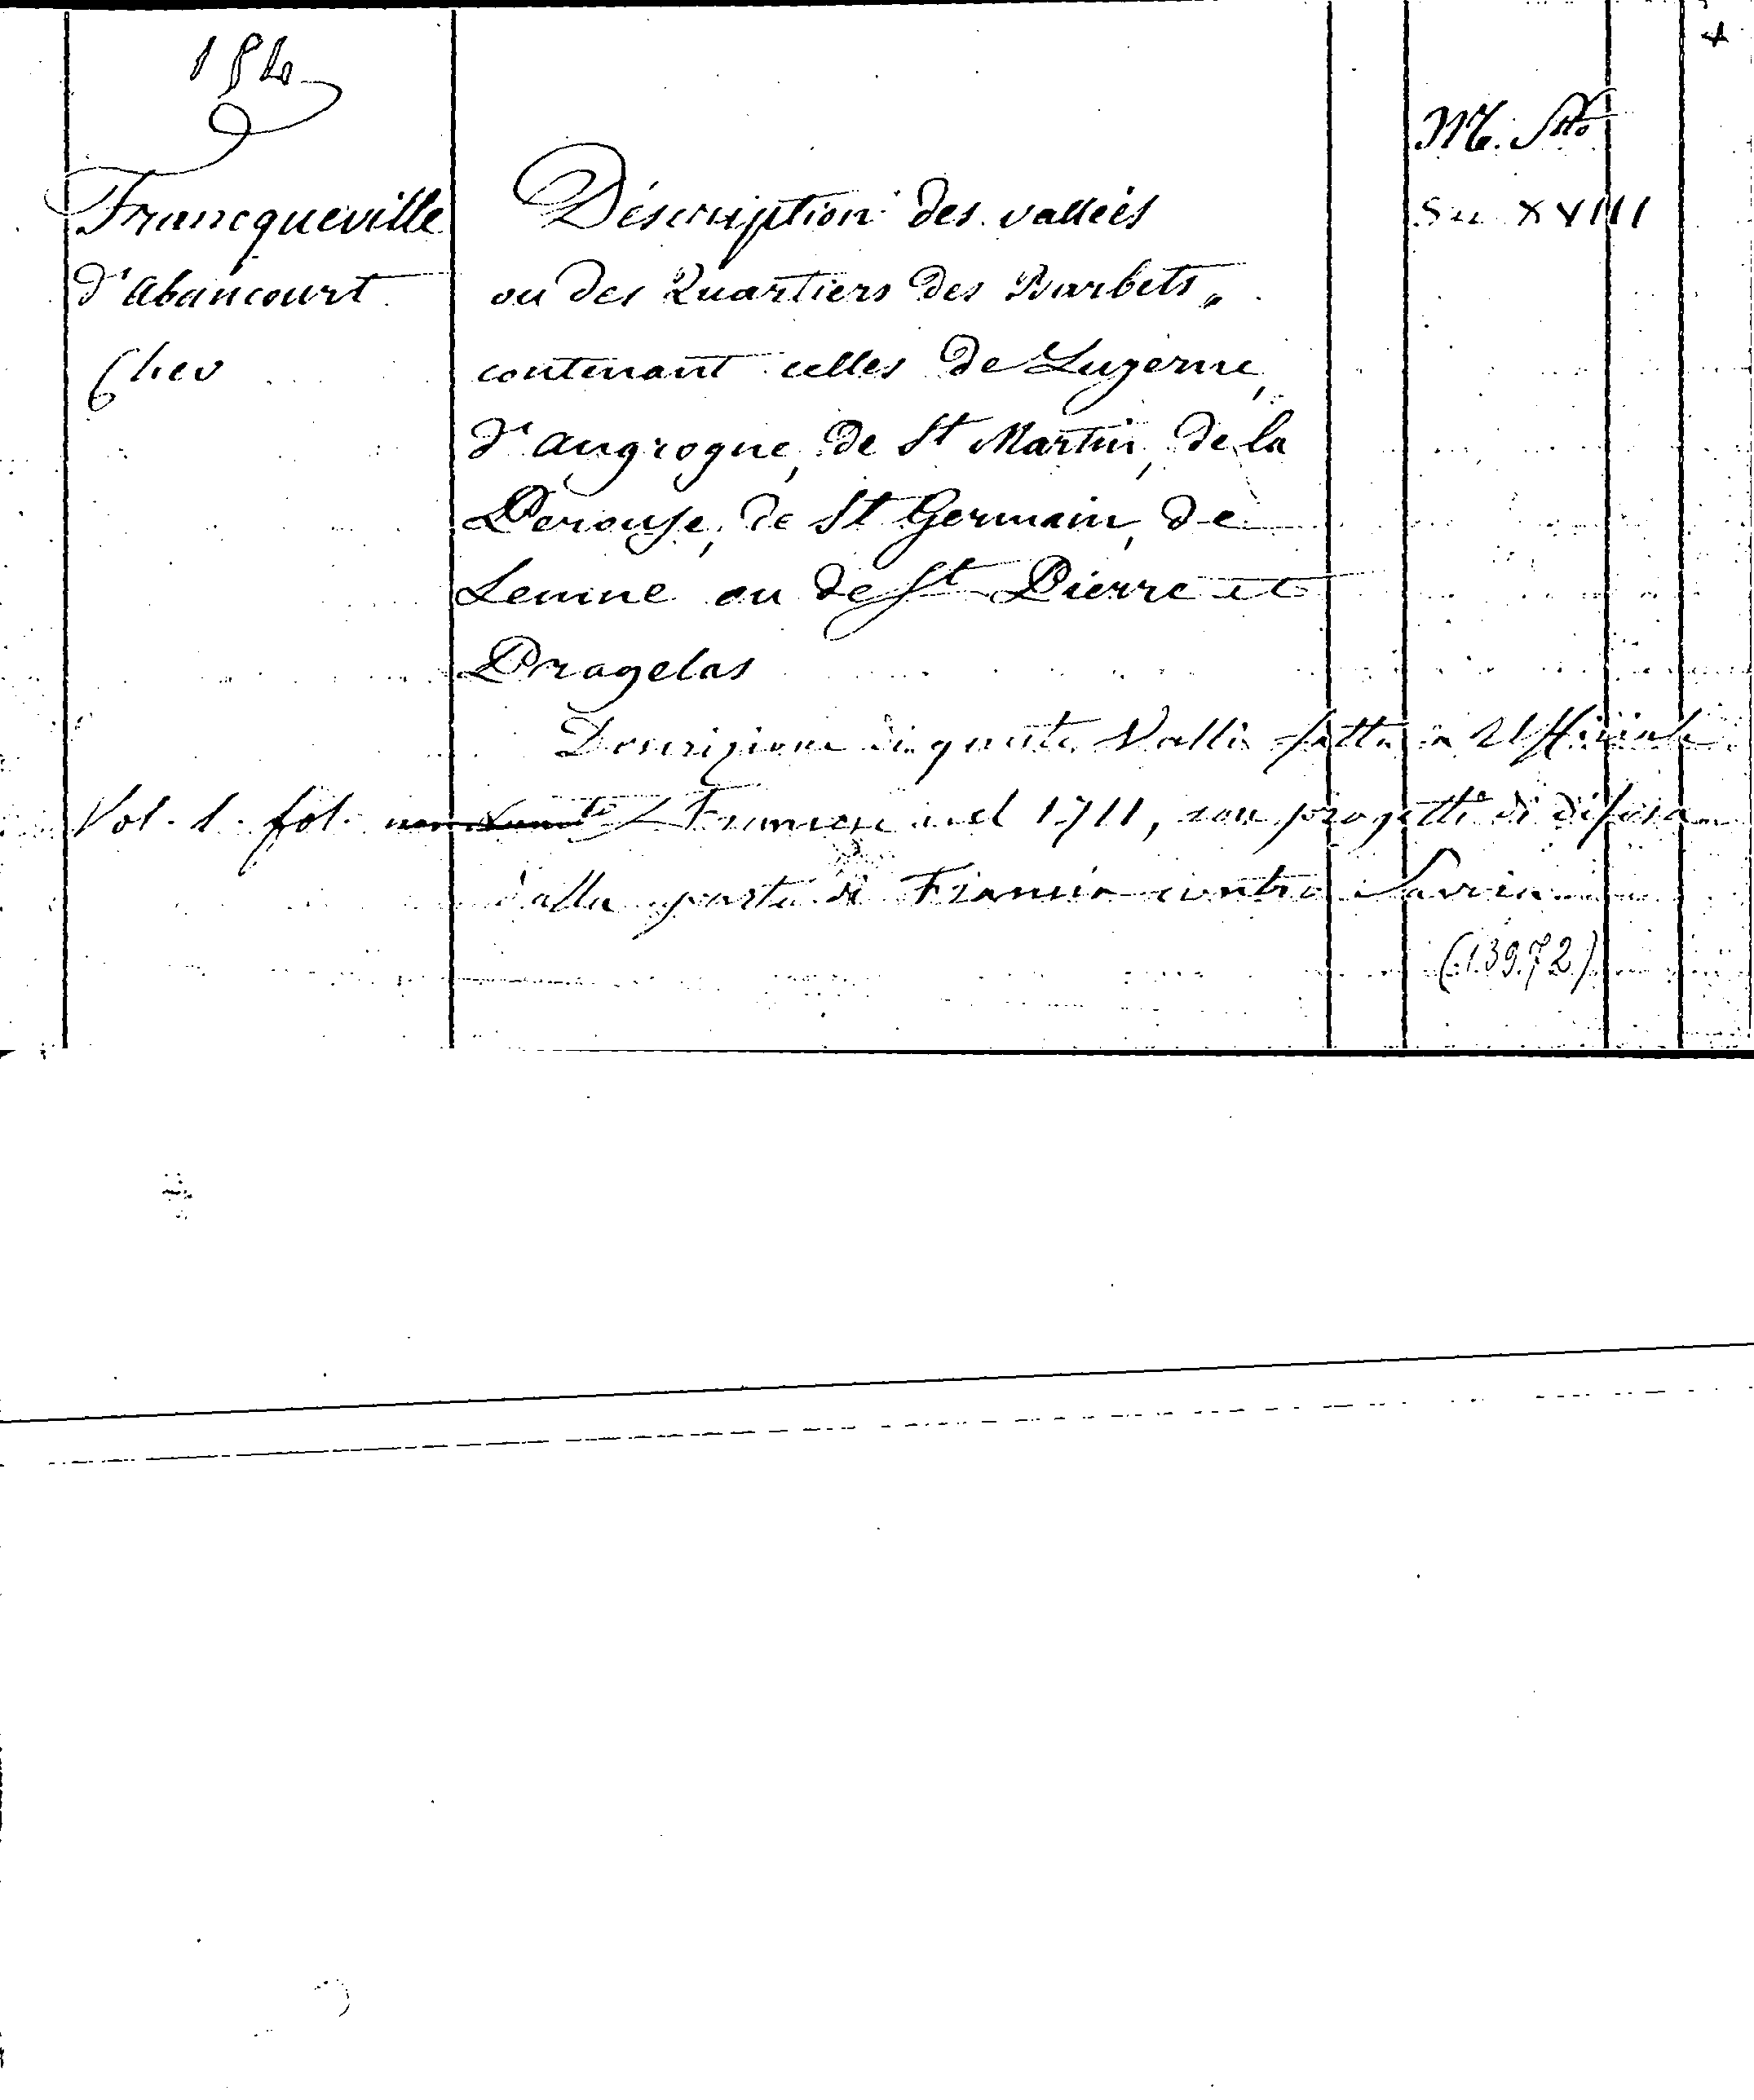 154
M. Sto
Francqueville
Déscription des vallées
Sec XVIII
d'Abancourt
ou des Quartiers des Barbets,
Chev
contenant celles de Luzerne,
d'Angrogne, de St Martin, de la
Perouse, de St Germain, de
Lemme ou de St Pierre et
Pragelas
Descrizione di queste Valli fatta da Ufficiale
Vol. 1. fol. Francese nel 1711, con progetti di difesa
dalla parte di Francia contro Savoia
(13972)